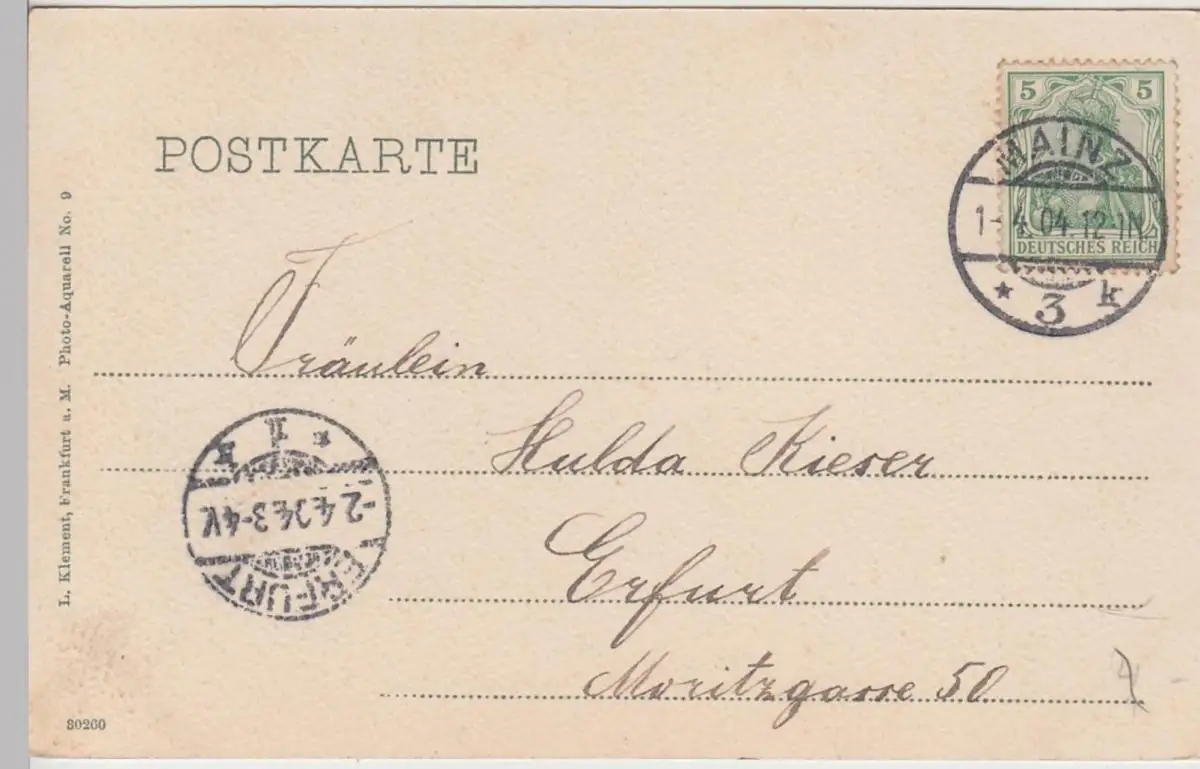 POSTKARTE
5 5
DEUTSCHES REICH
MAINZ
1-4.04.12-1N.
* 3 k
Fräulein
Hulda Kieser
Erfurt
Moritzgasse 50
* 1 *
-2.4.04.3-4V.
ERFURT
L. Klement, Frankfurt a. M. Photo-Aquarell No. 9
80260